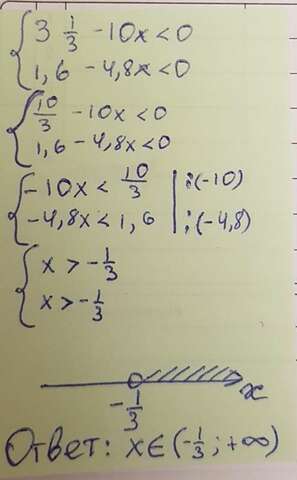 { 3 1/3 - 10x < 0
{ 1,6 - 4,8x < 0
{ 10/3 - 10x < 0
{ 1,6 - 4,8x < 0
{ -10x < 10/3 | :(-10)
{ -4,8x < 1,6 | :(-4,8)
{ x > -1/3
{ x > -1/3
-1/3 x
Ответ: x ∈ (-1/3; +∞)